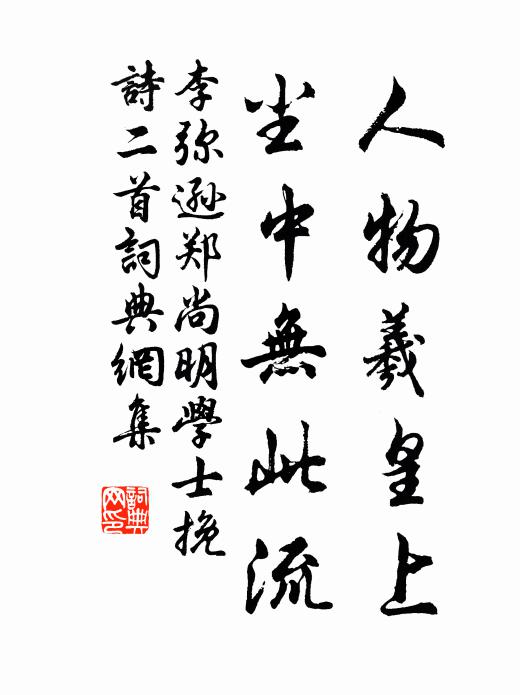 人物羲皇上
坐中無此流
李弥遜郑尚明學士挽
詩二首詞典網集
詞典网印